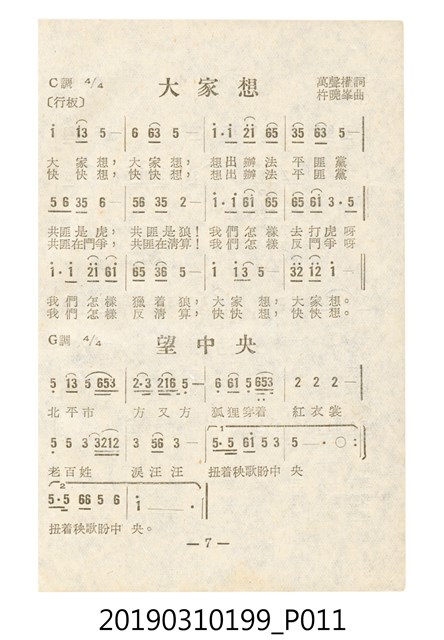 C調 4/4 大家想 萬聲權詞
〔行板〕 杵曉峯曲
i i3 5 — 6 63 5 — i·i 2i 65 35 63 5 —
大家想，大家想，想出辦法平匪黨
快快想，快快想，想出辦法平匪黨
5 6 35 6 — 56 35 2 — i·i 6i 65 65 6i 3·5
共匪是虎，共匪是狼！我們怎樣去打虎呀
共匪在鬥爭，共匪在清算！我們怎樣反鬥爭呀
i·i 2i 6i 65 36 5 — i i3 5 — 32 i2 i —
我們怎樣獵着狼，大家想，大家想。
我們怎樣反清算，快快想，快快想。
G調 4/4 望中央
5 i3 5 653 2·3 216 5 — 6 6i 5 653 2 2 2 —
北平市 方又方 狐狸穿着 紅衣裳
5 5 3 3212 3 56 3 — 1 5·5 6i 5 3 5 — · ○ :
老百姓 淚汪汪 扭着秧歌盼中央
2 5·5 66 5 6 i — ·
扭着秧歌盼中央。
— 7 —
20190310199_P011